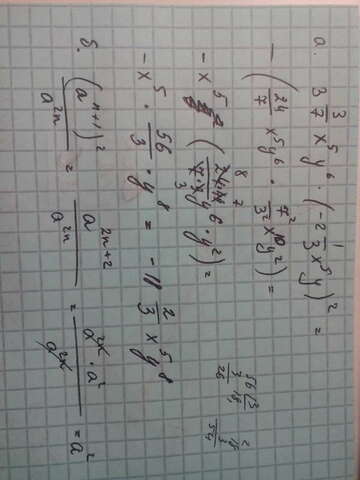 а. 3 3/7 x⁵y⁶ · (-2 1/3 x⁵y)² =
- (24/7 x⁵y⁶ · 7²/3² x¹⁰y²) =
-x⁵ ( y⁶ · y²) =
-x⁵ · 56/3 · y⁸ = -11 2/3 x⁵y⁸
б. (aⁿ⁺¹)²/a²ⁿ = a²ⁿ⁺²/a²ⁿ = a²ⁿ · a²/a²ⁿ = a²
56 | 3
3 18,
26